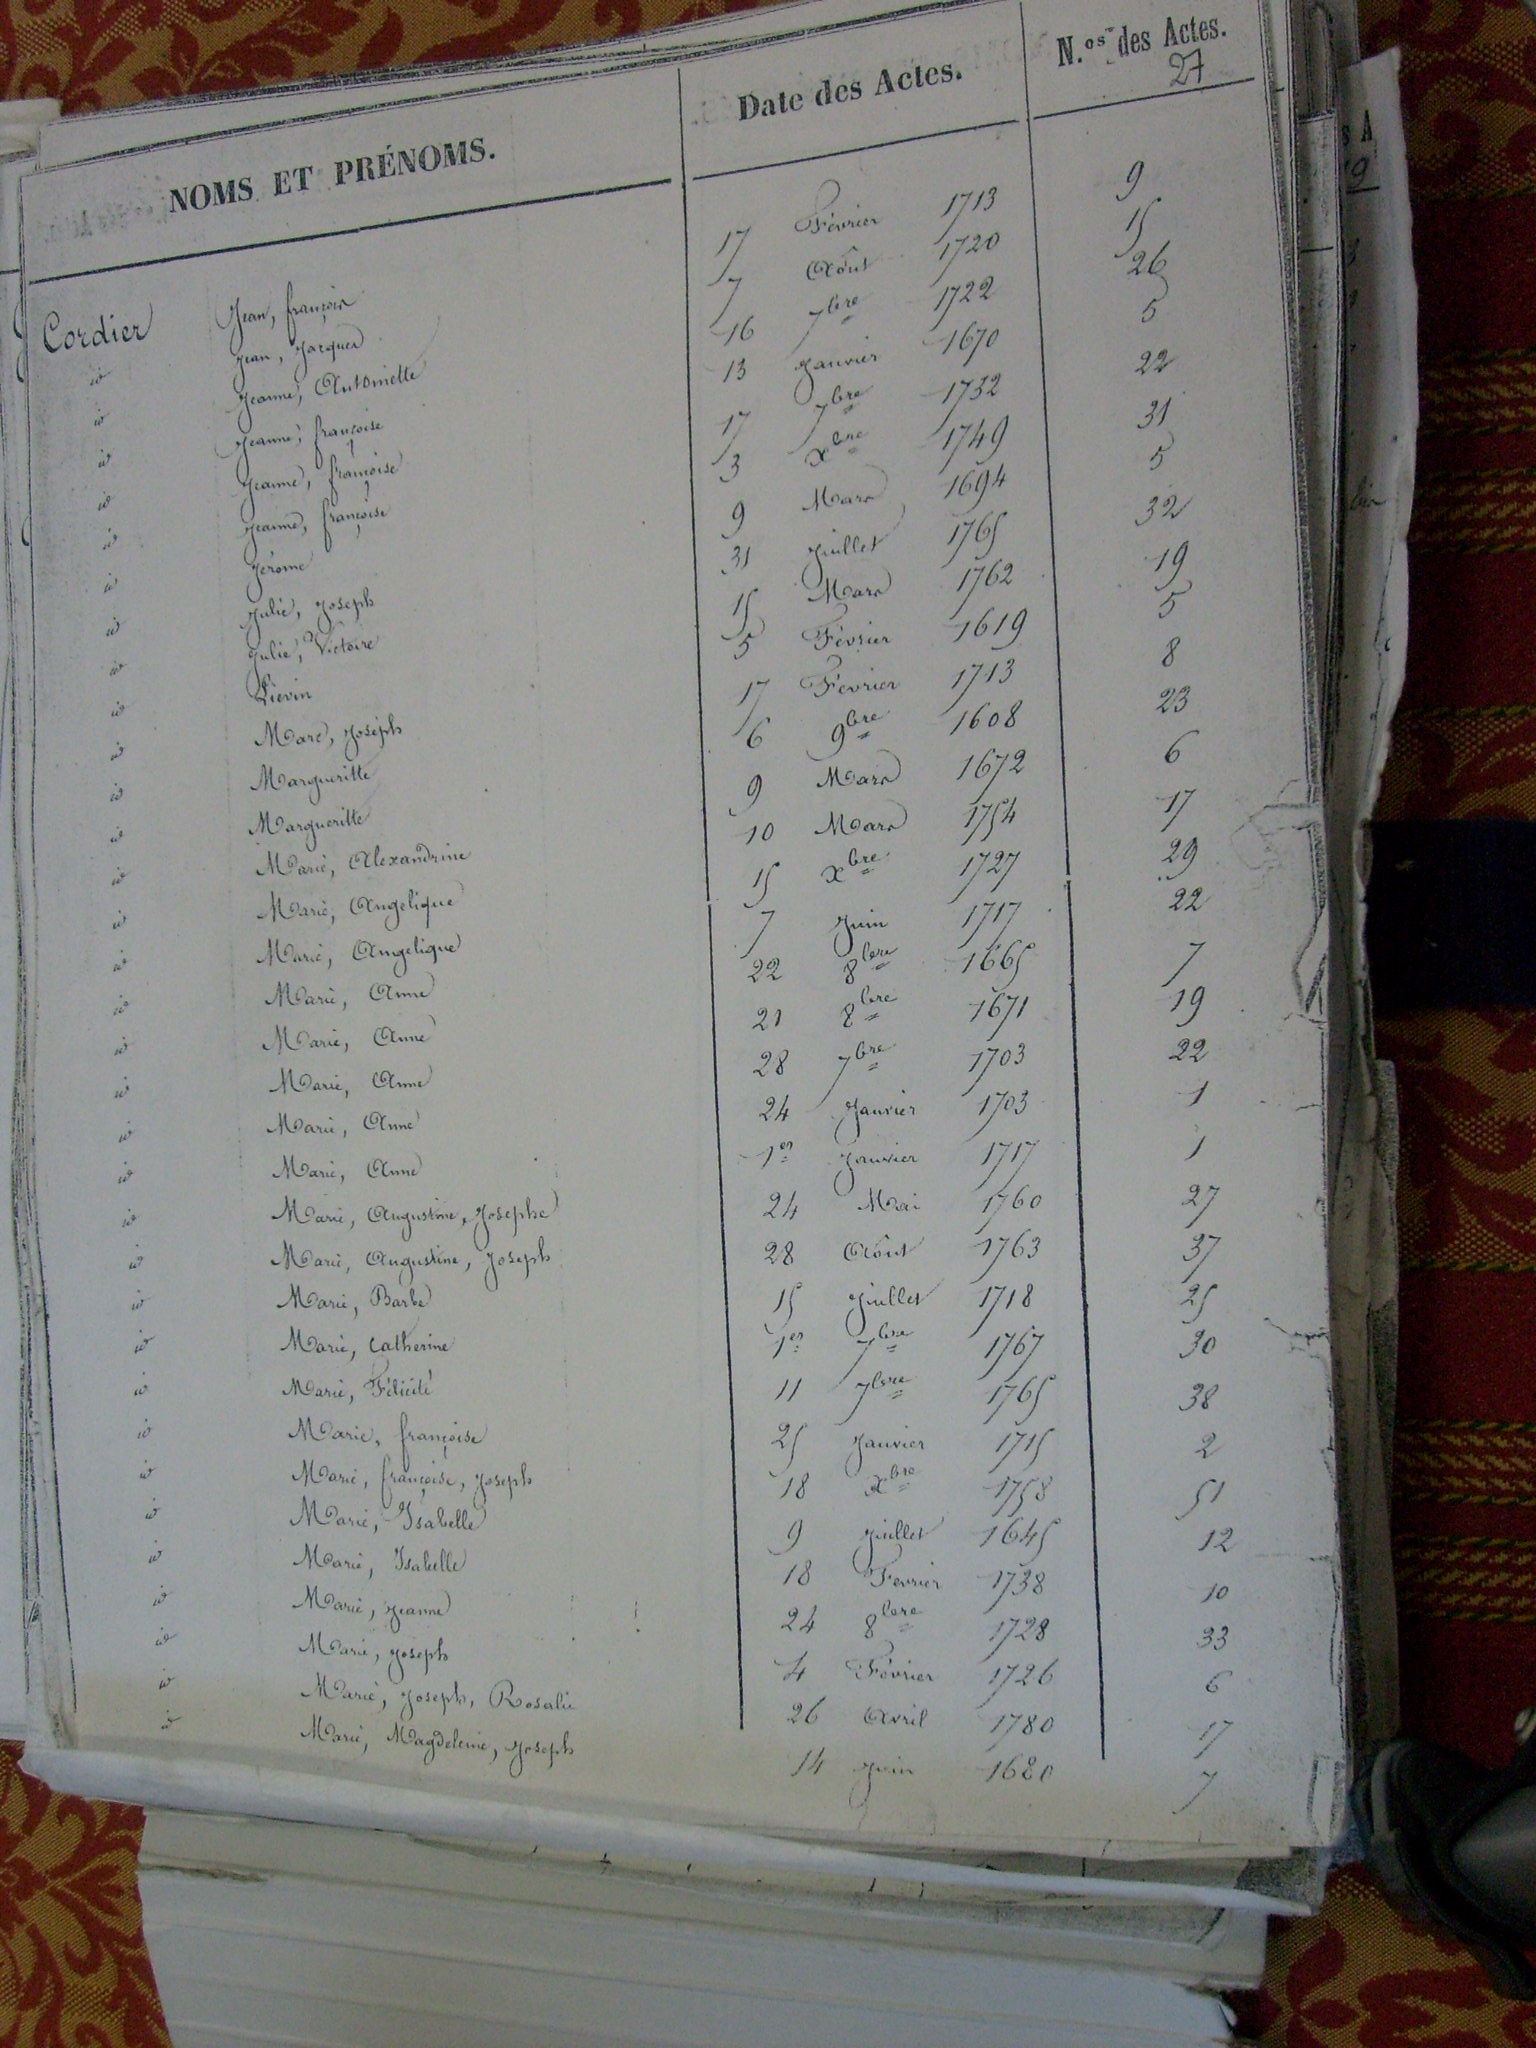 NOMS ET PRÉNOMS. Date des Actes. N.os des Actes.
27
Cordier Jean, françois 17 Février 1713 9
id Jean, Jacques 7 Août 1720 15
id Jeanne, Antoinette 16 7bre 1722 26
id Jeanne, françoise 13 Janvier 1670 5
id Jeanne, françoise 17 7bre 1732 22
id Jeanne, françoise 3 Xbre 1749 31
id Jérome 9 Mars 1694 5
id Julie, Joseph 31 Juillet 1765 32
id Julie, Victoire 15 Mars 1762 19
id Liévin 5 Février 1619 5
id Marc, Joseph 17 Février 1713 8
id Margueritte 6 9bre 1608 23
id Margueritte 9 Mars 1672 6
id Marie, Alexandrine 10 Mars 1754 17
id Marie, Angelique 15 Xbre 1727 29
id Marie, Angelique 7 Juin 1717 22
id Marie, Anne 22 8bre 1665 7
id Marie, Anne 21 8bre 1671 19
id Marie, Anne 28 7bre 1703 22
id Marie, Anne 24 Janvier 1703 1
id Marie, Anne 1er Janvier 1717 1
id Marie, Augustine, Josephe 24 Mai 1760 27
id Marie, Augustine, Joseph 28 Août 1763 37
id Marie, Barbe 15 Juillet 1718 25
id Marie, Catherine 1er 7bre 1767 30
id Marie, Félicité 11 7bre 1765 38
id Marie, françoise 25 Janvier 1715 2
id Marie, françoise, Joseph 18 Xbre 1758 51
id Marie, Isabelle 9 Juillet 1645 12
id Marie, Isabelle 18 Fevrier 1738 10
id Marie, Jeanne 24 8bre 1728 33
id Marie, Joseph 4 Février 1726 6
id Marie, Joseph, Rosalie 26 Avril 1780 17
id Marie, Magdeleine, Joseph 14 Juin 1680 7